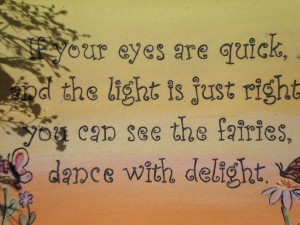 If your eyes are quick,
and the light is just right
you can see the fairies,
dance with delight.